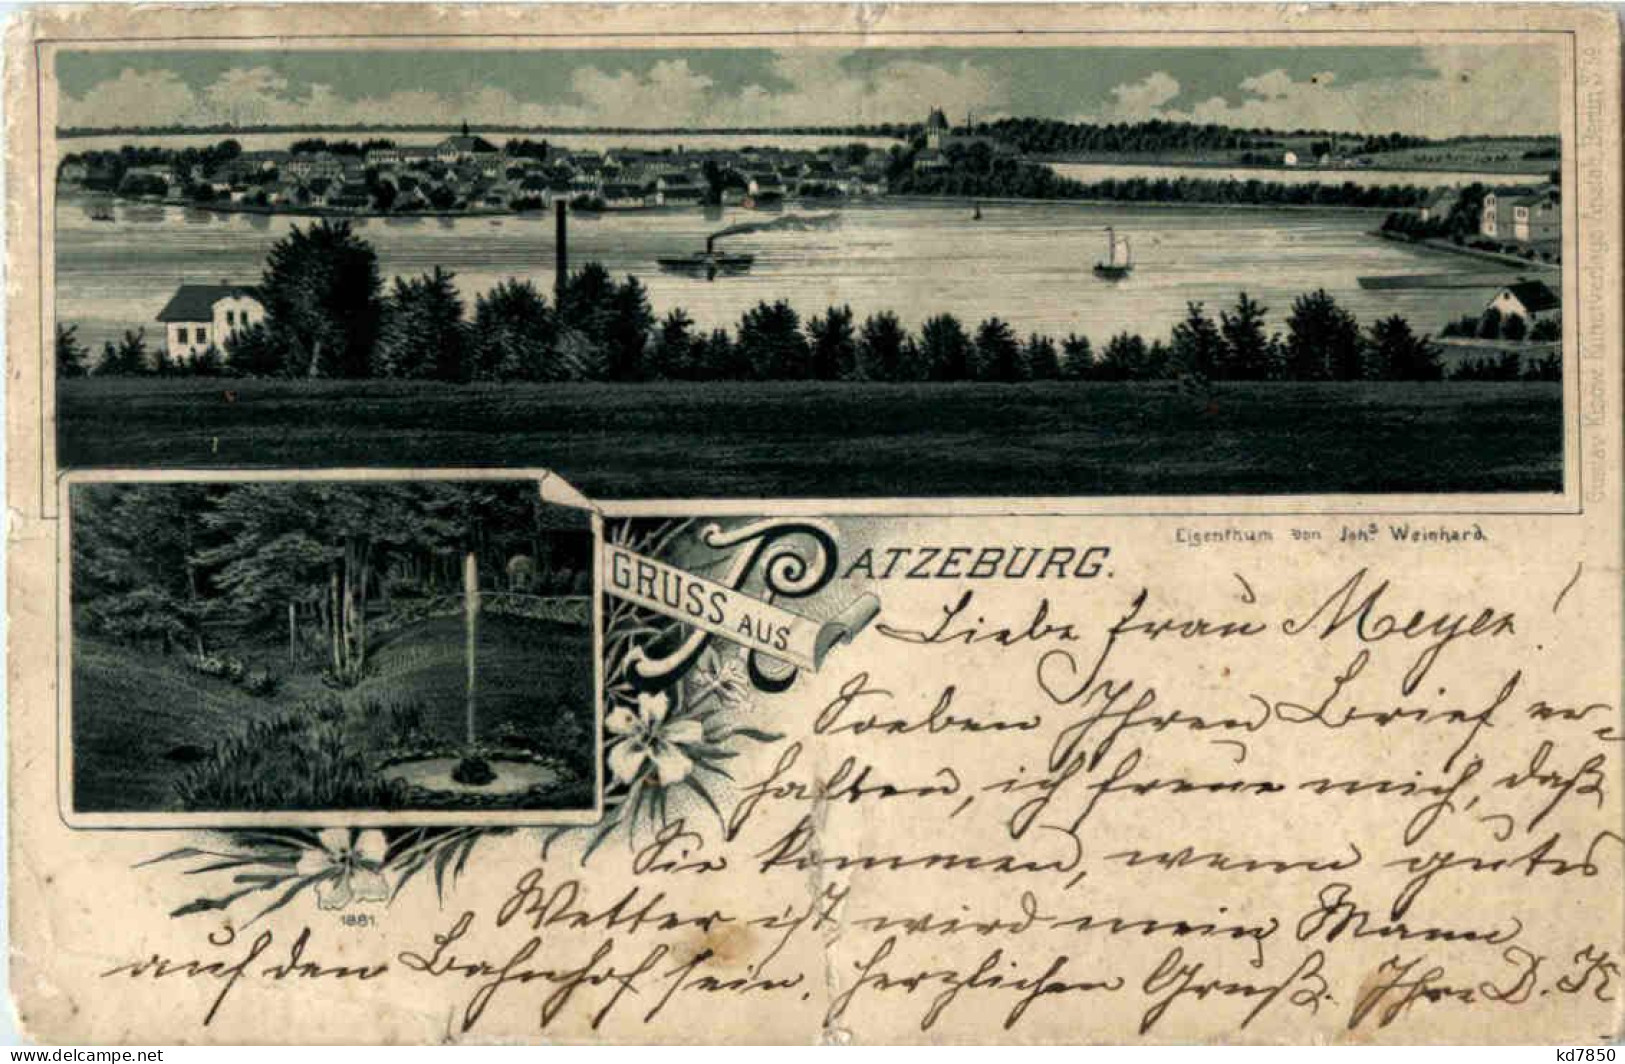 Gustav Kisow, Kunstverlags Anstalt, Berlin
Eigenthum von Johs Weinhard.
GRUSS AUS RATZEBURG.
Liebe Frau Meyer!
Soeben Ihren Brief er-
halten, ich freue mich, daß
Sie kommen, wenn gutes
Wetter ist, wird mein Mann
auf den Bahnhof sein. Herzlichen Gruß. Ihre D. K
1881.
www.delcampe.net
kd7850